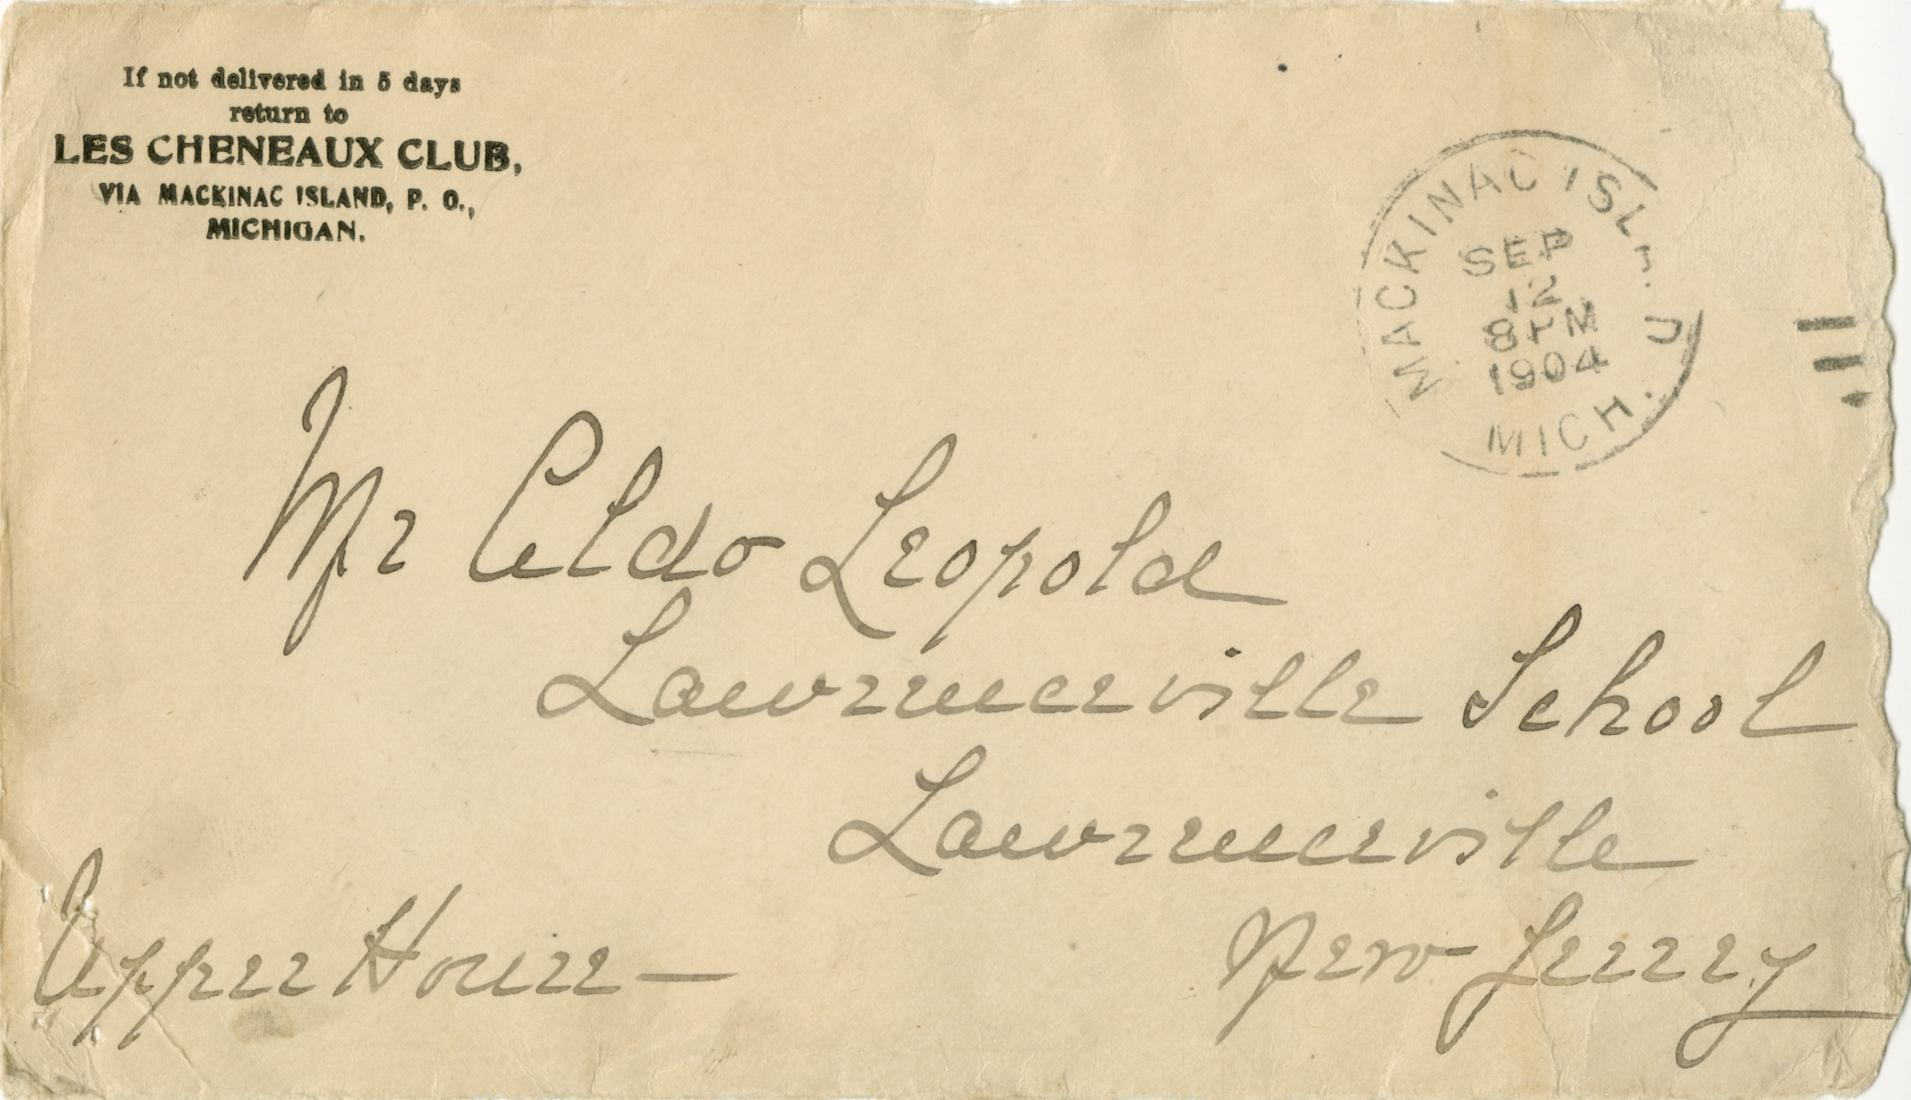 If not delivered in 5 days
return to
LES CHENEAUX CLUB,
VIA MACKINAC ISLAND, P. O.,
MICHIGAN.
MACKINAC ISL
SEP
12
8PM
1904
MICH.
Mr Aldo Leopold
Lawrenceville School
Lawrenceville
Upper House — New Jersey